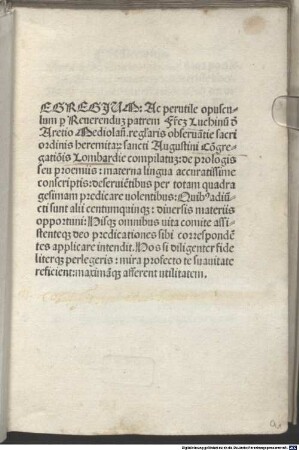 EGREGIUM: Ac perutile opuscu-
lum p Reverenduʒ patrem Frēʒ Luchinū d̄
Aretio Mediolań. reglaris obseruātie sacri
ordinis heremitaꝝ sancti Augustini Cōgre-
gatiōis Lombardie compilatuʒ: de prologis
seu proemiis: materna lingua accuratissime
conscriptis: deseruiētibus per totam quadra
gesimam predicare uolentibus: Quibꝰ adiū-
cti sunt alii centumquinqʒ: diuersis materiis
opportuni: Hisqʒ omnibus uita comite assi-
stenteqʒ deo predicationes sibi correspondē
tes applicare intendit. Hos si diligenter fide
literqʒ perlegeris: mira profecto te suauitate
reficient: maximāqʒ afferent utilitatem.